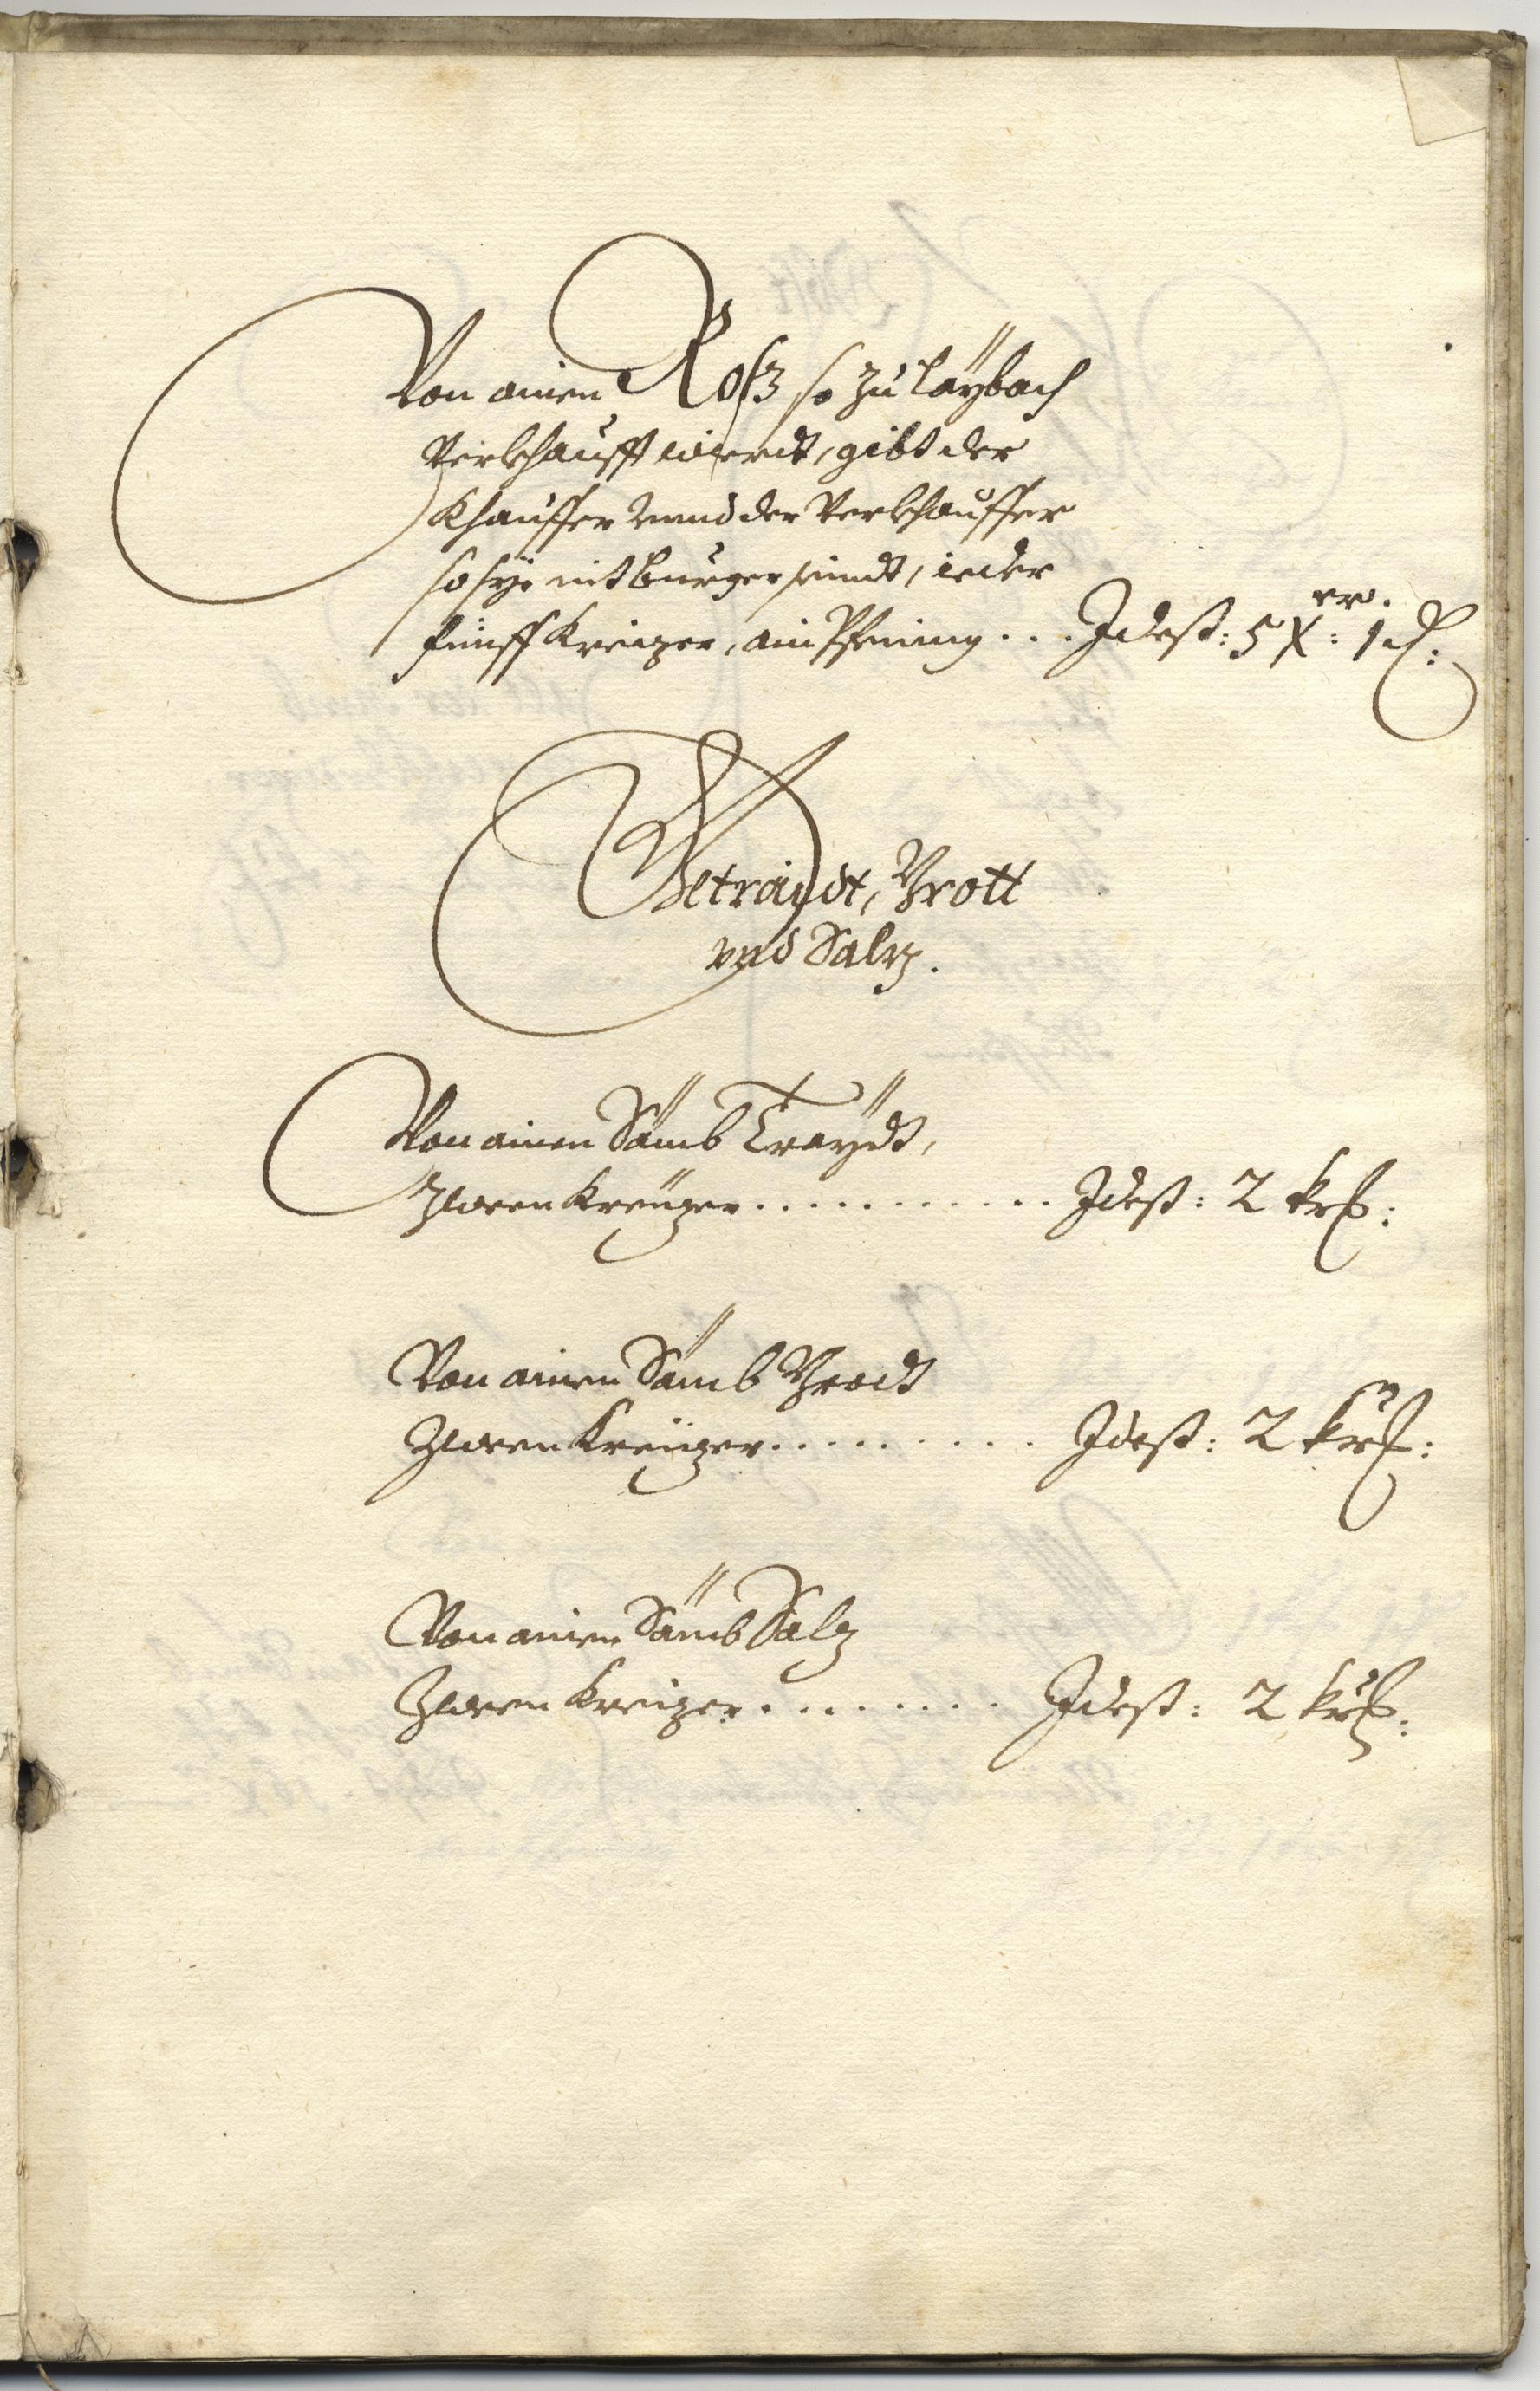 Von ainen Rosz so zu Laÿbach
Verkhaufft wierdt, gibt der
Khauffer vnnd der Verkhauffer
so sÿe nit burger seindt, ieder
fünff Kreizer, ain Pfening . . . Idest: 5 Xer: 1 d:
Getraidt, Brott
vnd Saltz.
Von ainen Sämb Traÿdt,
Zween Kreüzer . . . . . . . . . . . Idest: 2 krl:
Von ainen Sämb Brodt
Zween Kreüzer . . . . . . . . . . Idest: 2 krl:
Von ainen Sämb Salz
Zween Kreizer . . . . . . . . . Idest: 2 krl: